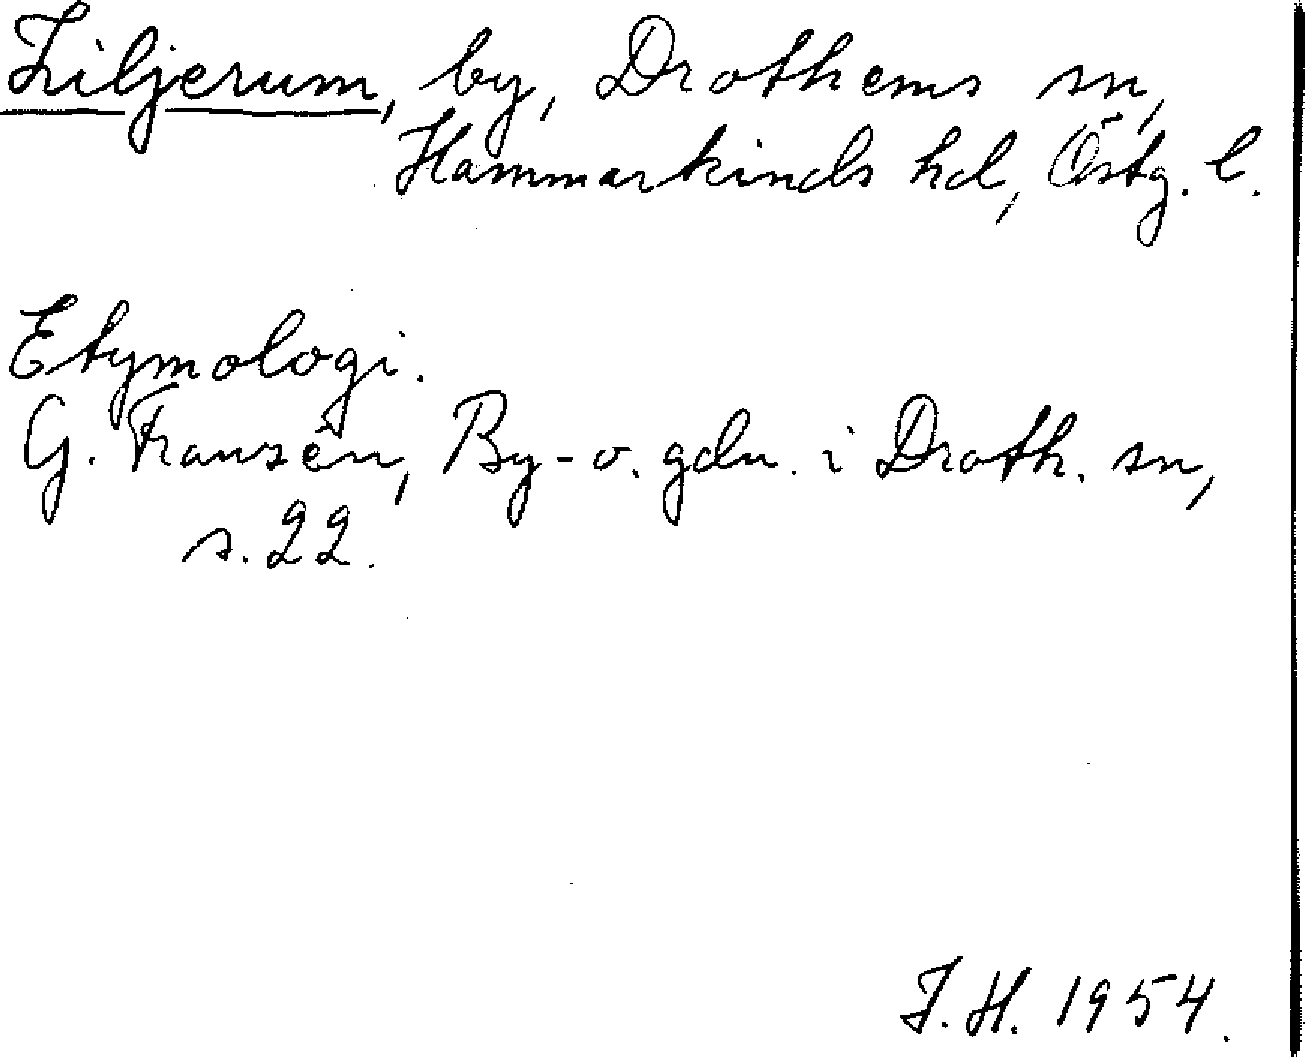 Liljerum, by, Drothems sn,
Hammarkinds hd, Östg. l.
Etymologi.
G. Franzén, By- o. gdn. i Droth. sn,
s. 22.
J. H. 1954.